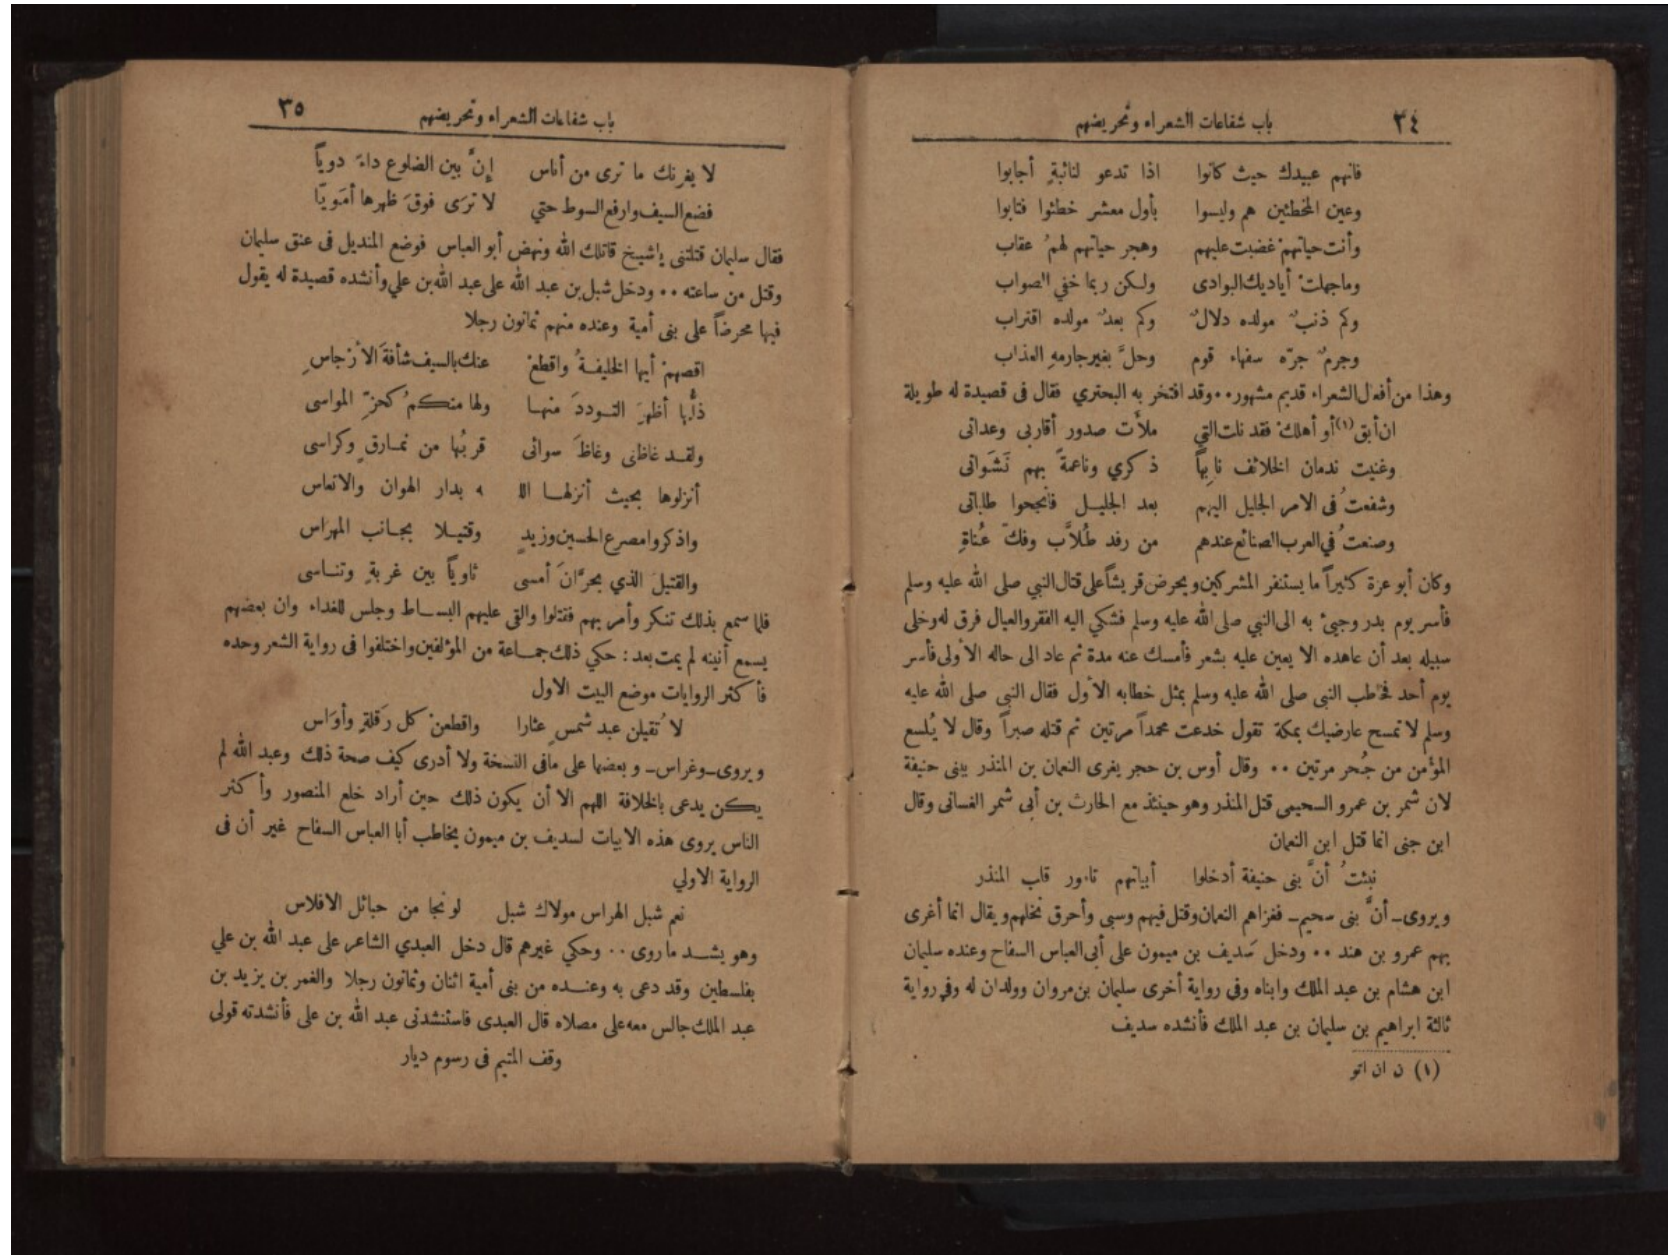 ٣٤ باب شفاعات الشعراء وتحريضهم
فانهم عبيدك حيث كانوا اذا تدعو لنائبةٍ أجابوا
وعين المخطئين هم وليسوا بأول معشر خطئوا فتابوا
وأنت حياتهمْ غضبت عليهم وهجر حياتهم لهمُ عقاب
وما جهلتْ أياديك البوادى ولكن ربما خفي الصواب
وكم ذنبٌ مولده دلالٌ وكم بعدٌ مولده اقتراب
وجرمٌ جرّه سفهاء قوم وحلَّ بغير جارمهِ العذاب
وهذا من أفعال الشعراء قديم مشهور٠٠ وقد افتخر به البحتري فقال فى قصيدة له طويلة
ان أبق(١) أو أهلكْ فقد نلت التي ملأت صدور أقاربى وعداتى
وغنيت ندمان الخلائف نابهاً ذكري وناعمةً بهم نَشَواتى
وشفعتُ فى الامر الجليل اليهم بعد الجليل فأنجحوا طلباتى
وصنعتُ في العرب الصنائع عندهم من رفد طُلاَّب وفكّ عُناةِ
وكان أبو عزة كثيراً ما يستنفر المشركين ويحرض قريشاً على قتال النبي صلى الله عليه وسلم
فأسر يوم بدر وجيئ به الى النبي صلى الله عليه وسلم فشكي اليه الفقر والعيال فرق له وخلى
سبيله بعد أن عاهده الا يعين عليه بشعر فأمسك عنه مدة ثم عاد الى حاله الأولى فأسر
يوم أحد فخاطب النبى صلى الله عليه وسلم بمثل خطابه الأول فقال النبى صلى الله عليه
وسلم لا تمسح عارضيك بمكة تقول خدعت محمداً مرتين ثم قتله صبراً وقال لا يُلسع
المؤمن من جُحر مرتين ٠٠ وقال أوس بن حجر يغرى النعمان بن المنذر ببنى حنيفة
لان شمر بن عمرو السحيمى قتل المنذر وهو حينئذ مع الحارث بن أبى شمر الغسانى وقال
ابن جنى انما قتل ابن النعمان
نبئتُ أنَّ بنى حنيفة أدخلوا أبياتهم تامور قلب المنذر
ويروى ـ أنَّ بنى سحيم ـ فغزاهم النعمان وقتل فيهم وسبى وأحرق نخلهم ويقال انما أغرى
بهم عمرو بن هند ٠٠ ودخل سَديف بن ميمون على أبى العباس السفاح وعنده سليمان
ابن هشام بن عبد الملك وابناه وفي رواية أخرى سليمان بن مروان وولدان له وفي رواية
ثالثة ابراهيم بن سليمان بن عبد الملك فأنشده سديف
(١) ن ان اتو
باب شفاعات الشعراء وتحريضهم ٣٥
لا يغرنك ما ترى من أناس إنَّ بين الضلوع داءً دوياً
فضع السيف وارفع السوط حتي لا ترَى فوقَ ظهرها أمَويّا
فقال سليمان قتلتنى ياشيخ قاتلك الله ونهض أبو العباس فوضع المنديل فى عنق سليمان
وقتل من ساعته ٠٠ ودخل شبل بن عبد الله على عبد الله بن علي وأنشده قصيدة له يقول
فيها محرضاً على بنى أمية وعنده منهم ثمانون رجلا
اقصهمْ أيها الخليفةُ واقطعْ عنك بالسيف شأفةَ الارْجاسِ
ذلُّها أظهرَ التوددَ منها ولها منكمُ كحزِّ المواسى
ولقد غاظنى وغاظَ سوائى قربُها من نمارقٍ وكراسى
أنزلوها بحيث أنزلها اللـ ـه بدار الهوان والاتعاس
واذكروا مصرع الحسين وزيدٍ وقتيلا بجانب المهراس
والقتيلَ الذي بحرَّانَ أمسى ثاوياً بين غربةٍ وتناسى
فلما سمع بذلك تنكر وأمر بهم فقتلوا والقى عليهم البساط وجلس للغداء وان بعضهم
يسمع أنينه لم يمت بعد : حكي ذلك جماعة من المؤلفين واختلفوا فى رواية الشعر وحده
فأكثر الروايات موضع البيت الاول
لا تُقيلن عبد شمسٍ عثارا واقطعنْ كل رَقلةٍ وأوَاس
ويروى ـ وغراس ـ وبعضها على مافى النسخة ولا أدرى كيف صحة ذلك وعبد الله لم
يكن يدعى بالخلافة اللهم الا أن يكون ذلك حين أراد خلع المنصور وأكثر
الناس يروى هذه الابيات لسديف بن ميمون يخاطب أبا العباس السفاح غير أن فى
الرواية الاولي
نعم شبل الهراس مولاك شبل لو نجا من حبائل الافلاس
وهو يشد ماروى ٠٠ وحكي غيرهم قال دخل العبدي الشاعر على عبد الله بن علي
بفلسطين وقد دعى به وعنده من بنى أمية اثنان وثمانون رجلا والغمر بن يزيد بن
عبد الملك جالس معه على مصلاه قال العبدى فاستنشدنى عبد الله بن على فأنشدته قولى
وقف المتيم فى رسوم ديار